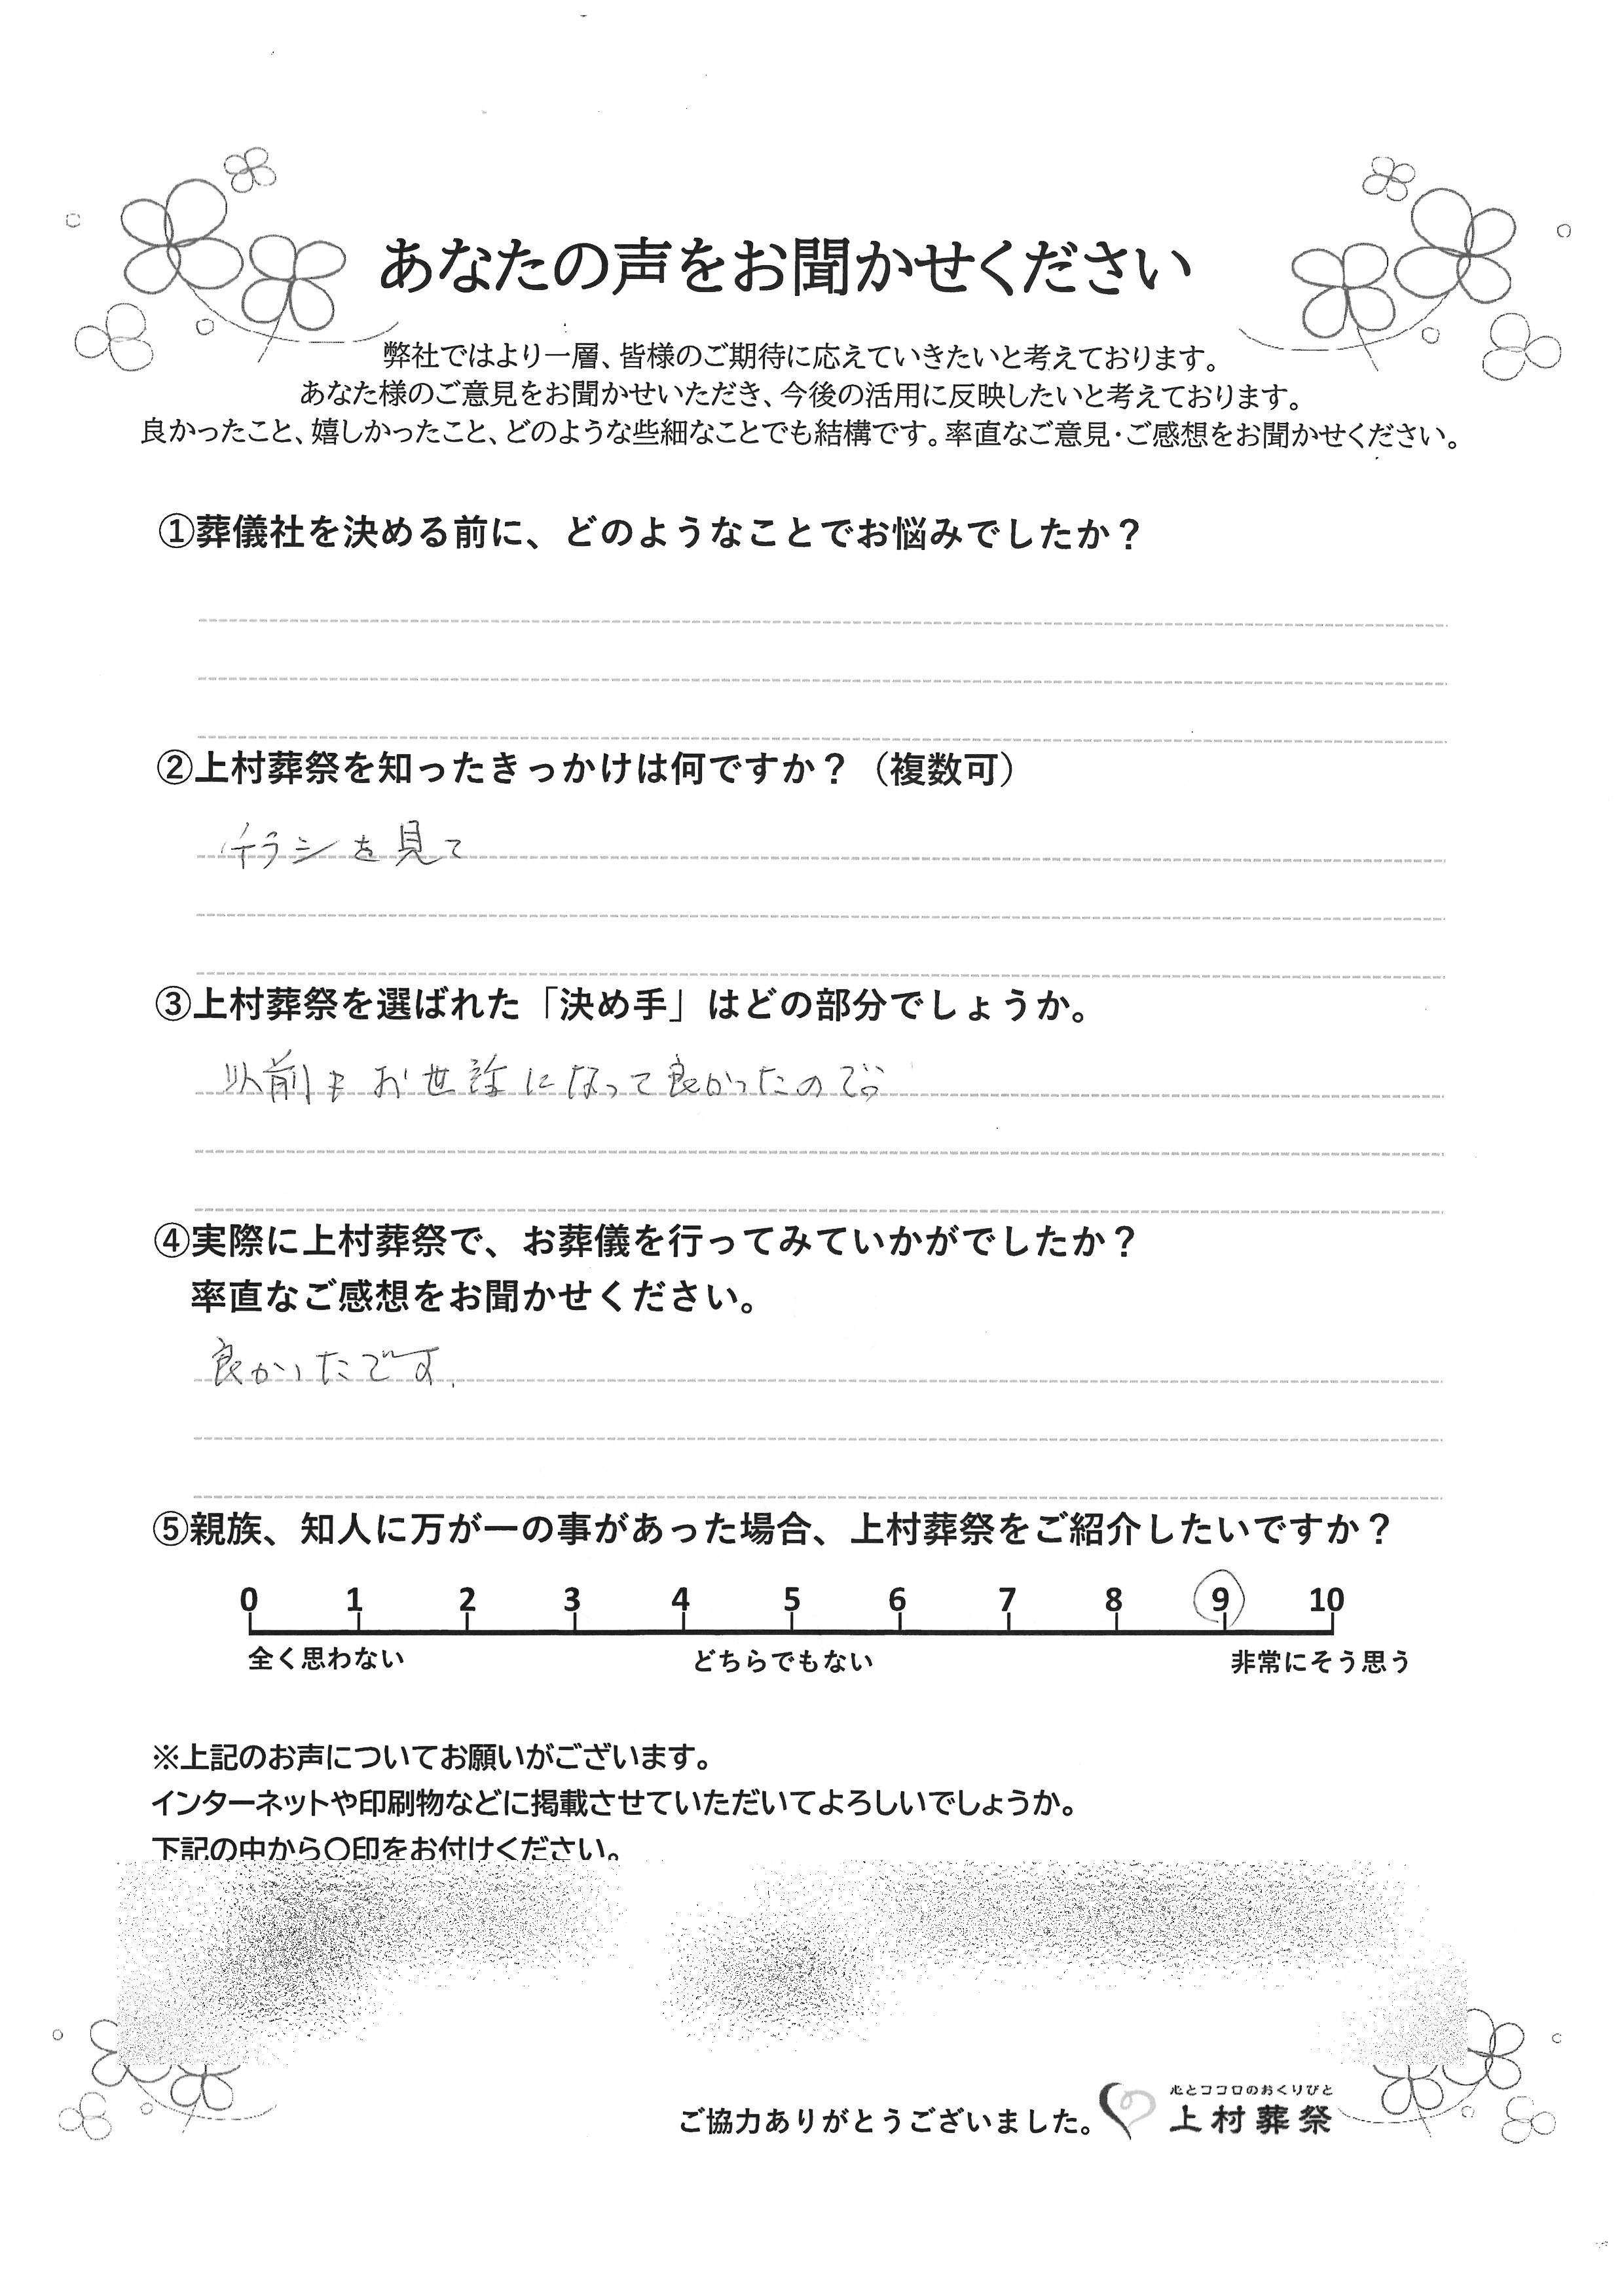 あなたの声をお聞かせください
弊社ではより一層、皆様のご期待に応えていきたいと考えております。
あなた様のご意見をお聞かせいただき、今後の活用に反映したいと考えております。
良かったこと、嬉しかったこと、どのような些細なことでも結構です。率直なご意見・ご感想をお聞かせください。
①葬儀社を決める前に、どのようなことでお悩みでしたか？
②上村葬祭を知ったきっかけは何ですか？（複数可）
チラシを見て
③上村葬祭を選ばれた「決め手」はどの部分でしょうか。
以前もお世話になって良かったので。
④実際に上村葬祭で、お葬儀を行ってみていかがでしたか？
率直なご感想をお聞かせください。
良かったです.
⑤親族、知人に万が一の事があった場合、上村葬祭をご紹介したいですか？
0 1 2 3 4 5 6 7 8 9 10
全く思わない どちらでもない 非常にそう思う
※上記のお声についてお願いがございます。
インターネットや印刷物などに掲載させていただいてよろしいでしょうか。
下記の中から〇印をお付けください。
心とココロのおくりびと
ご協力ありがとうございました。 上村葬祭